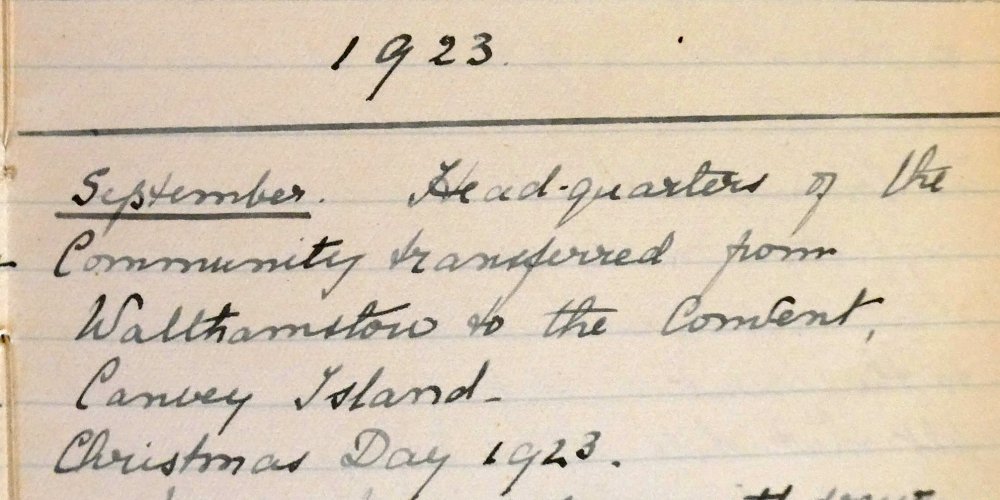 1923.
September. Head-quarters of the
Community transferred from
Walthamstow to the Convent,
Canvey Island-
Christmas Day 1923.